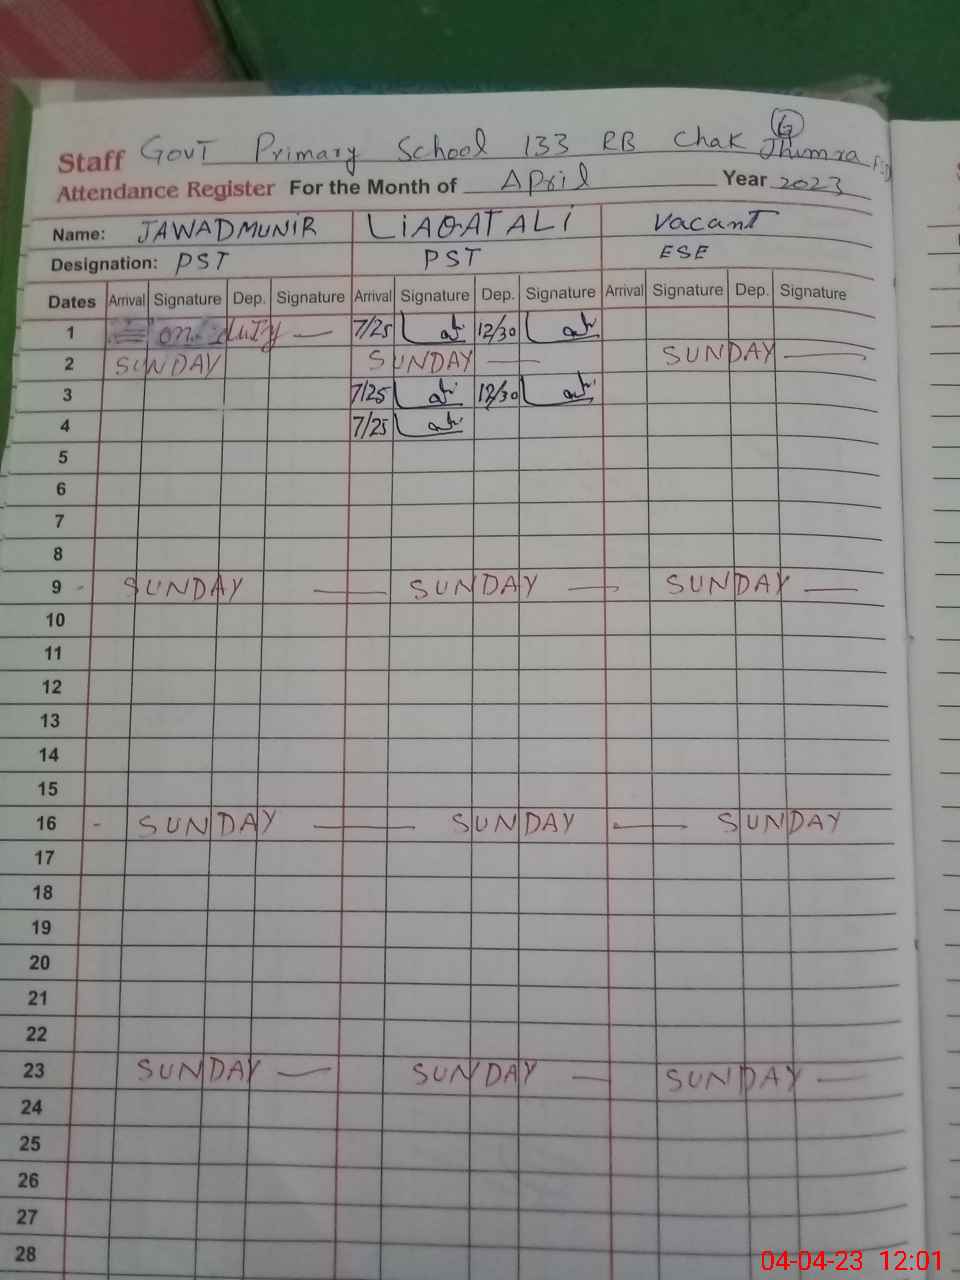 Staff Govt Primary School 133 RB Chak Jhumra FSD
G
Attendance Register For the Month of April Year 2023
Name: JAWAD MUNIR LIAQAT ALI Vacant
Designation: PST PST ESE
Dates Arrival Signature Dep. Signature Arrival Signature Dep. Signature Arrival Signature Dep. Signature
1 on duty — 7/25 12/30
2 SUNDAY SUNDAY — SUNDAY —
3 7/25 12/30
4 7/25
5
6
7
8
9 - SUNDAY — SUNDAY — SUNDAY —
10
11
12
13
14
15
16 - SUNDAY — SUNDAY — SUNDAY
17
18
19
20
21
22
23 SUNDAY — SUNDAY — SUNDAY —
24
25
26
27
28
04-04-23 12:01